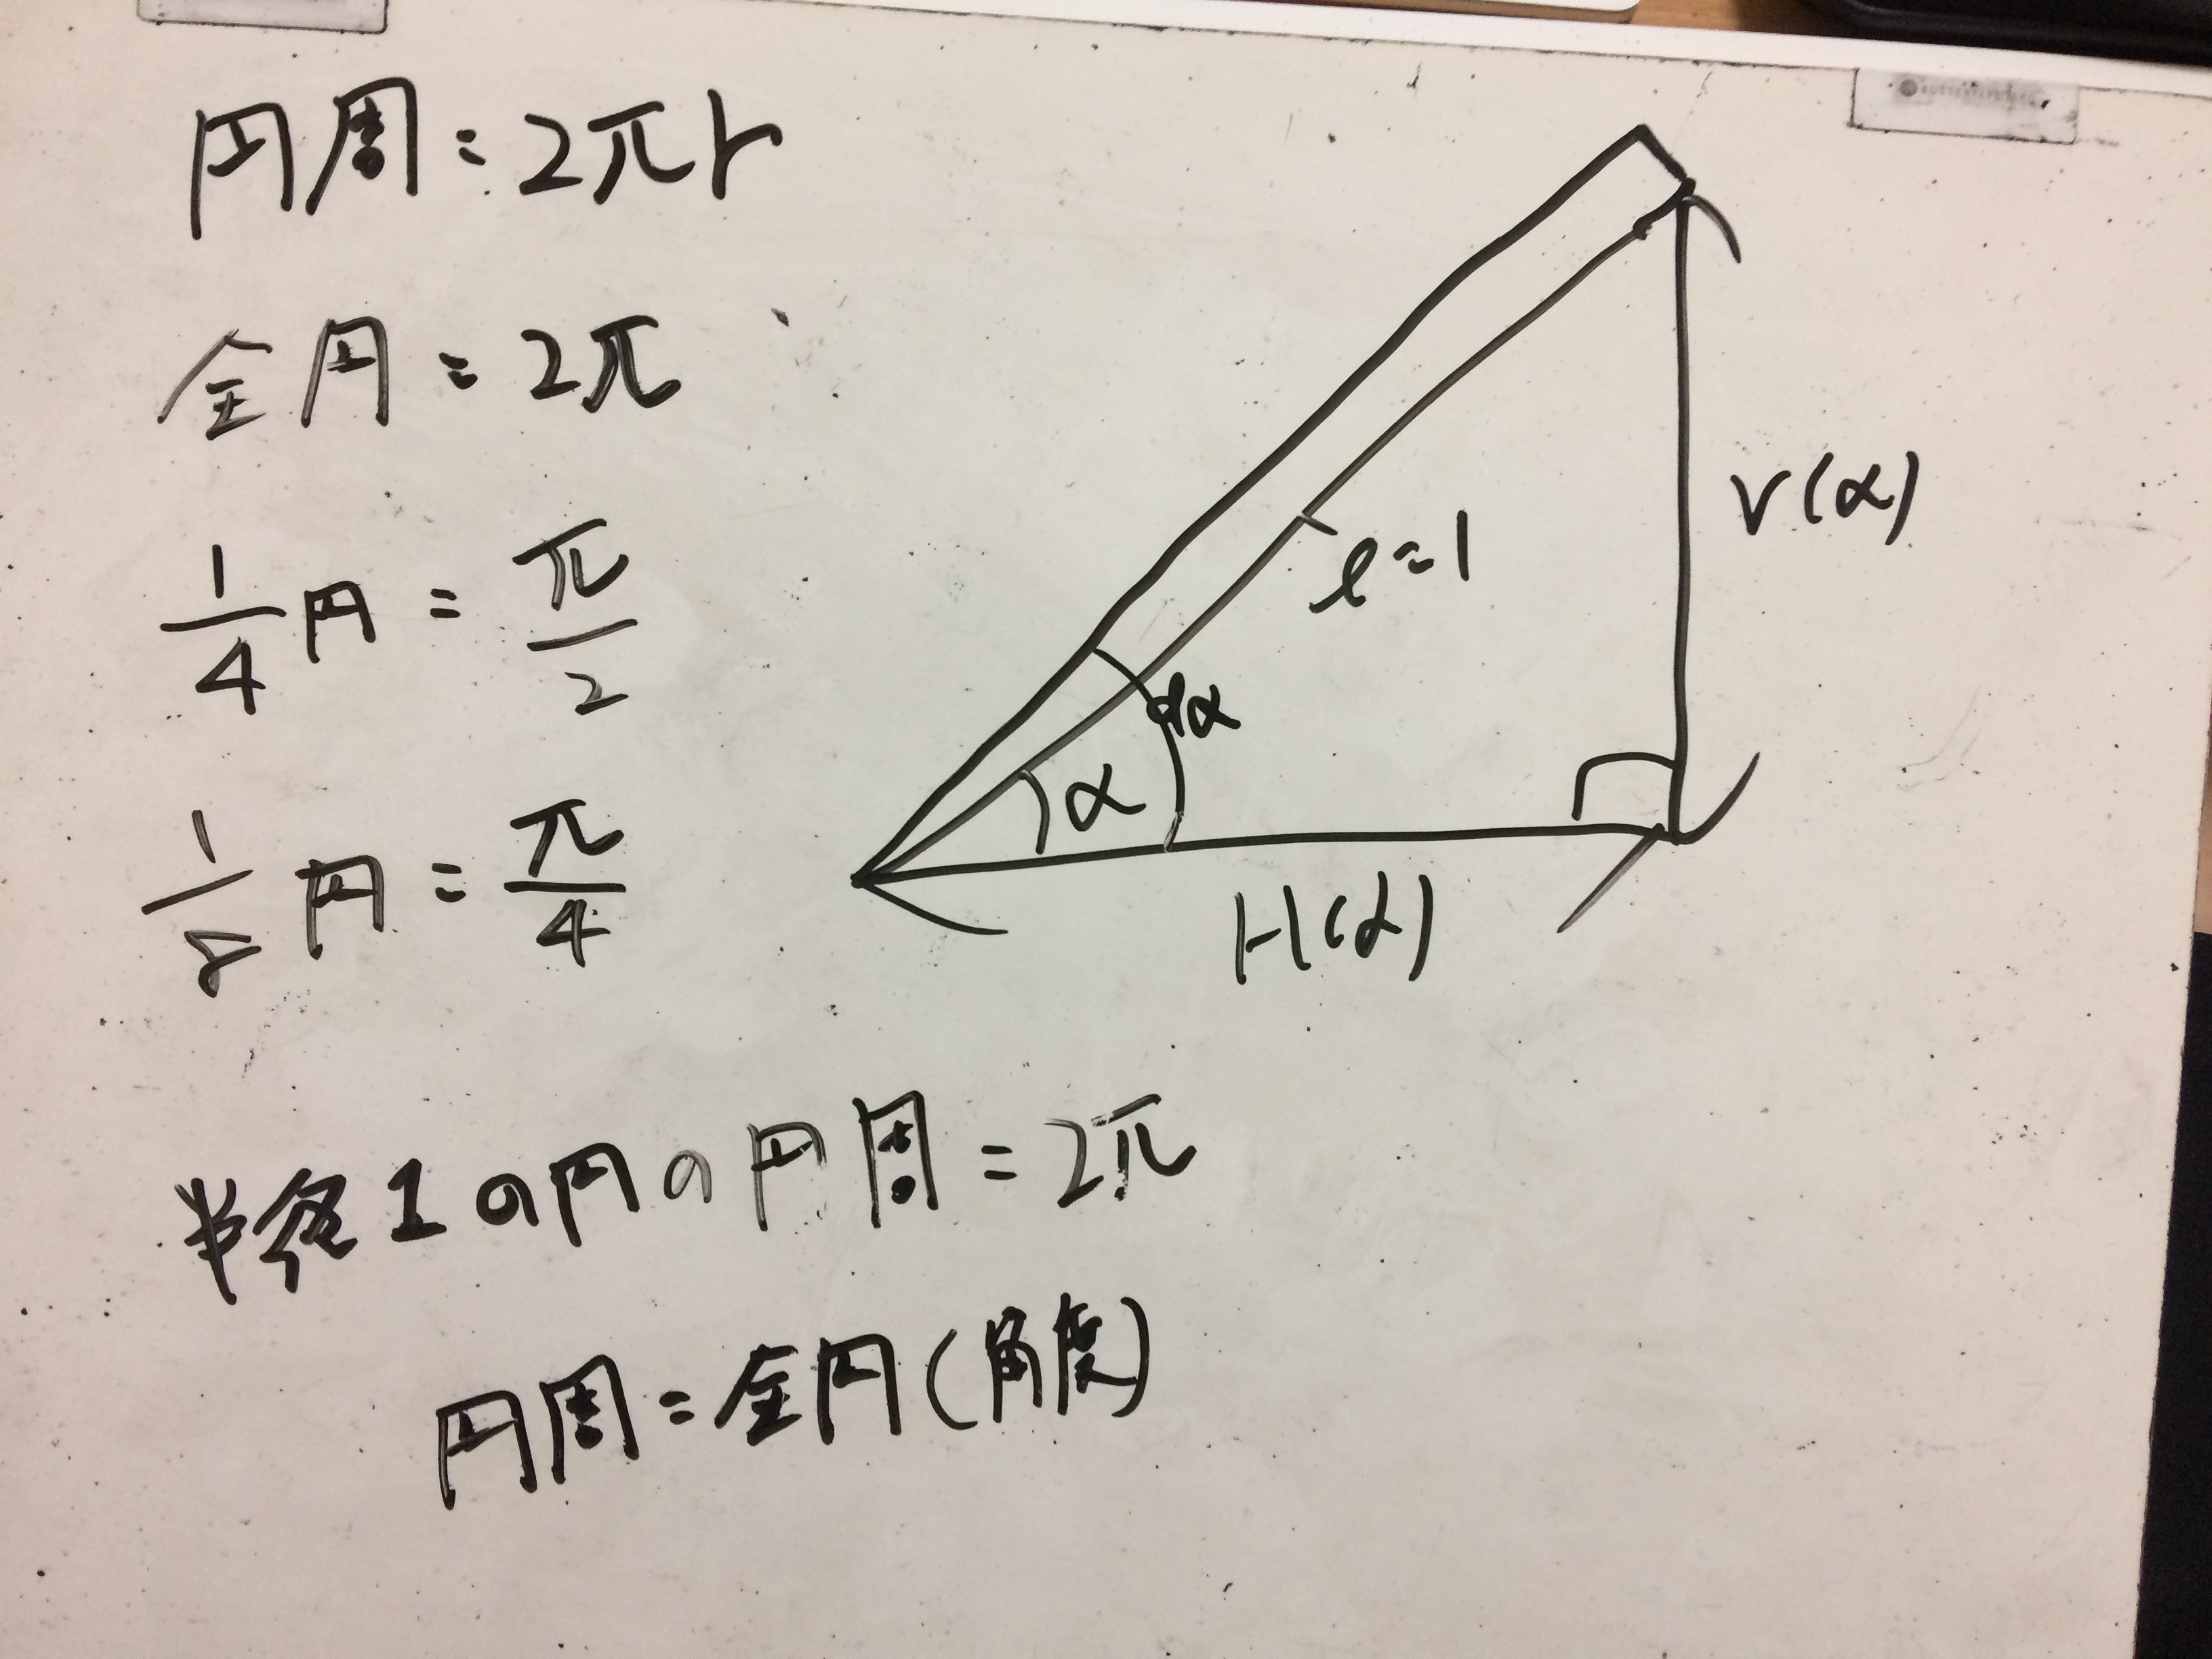 円周=2πr
全円=2π
1/4円=π/2
1/8円=π/4
半径1の円の円周=2π
円周=全円(角度)
α
dα
l=1
H(α)
V(α)